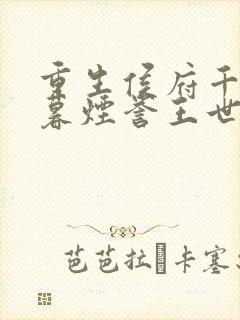 重生侯府千
暮煙誉王世
芭芭拉·卡塞